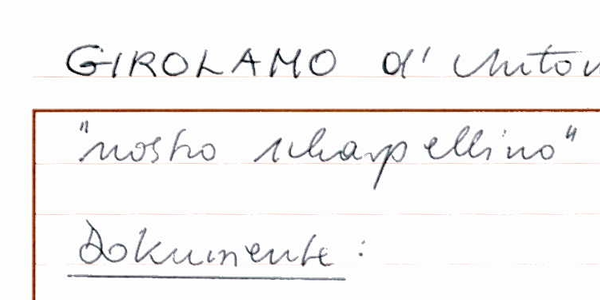 GIROLAMO d'
"nostro scharpellino"
Dokumente: